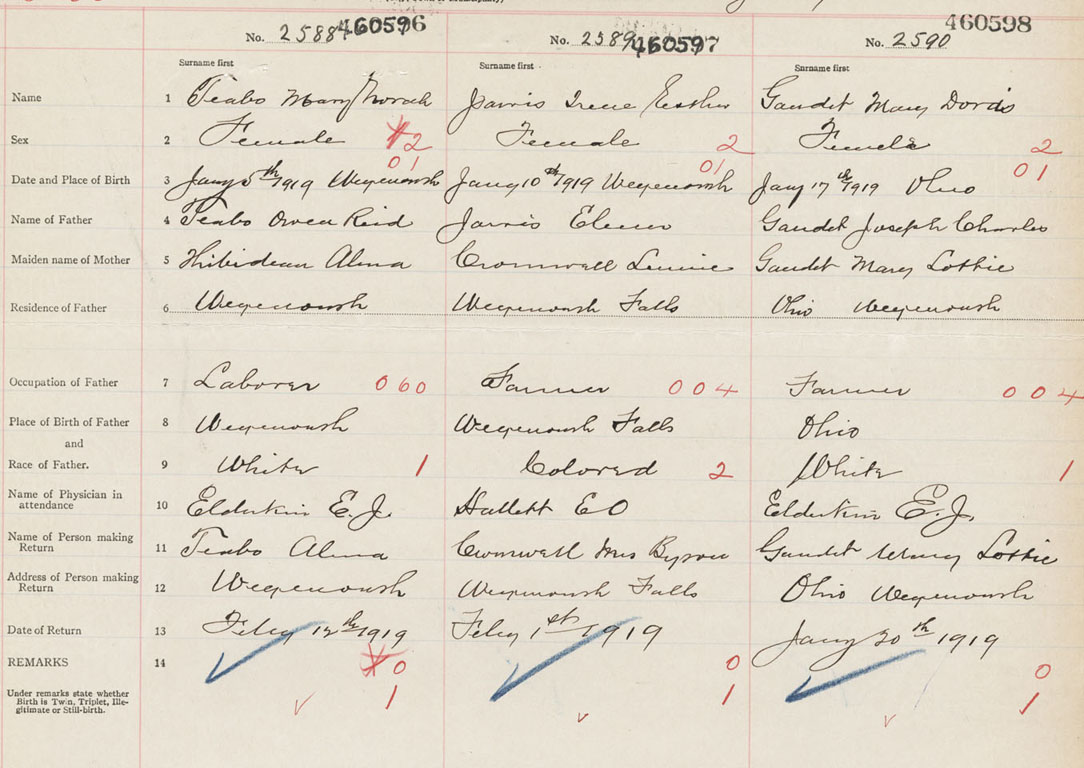 No. 2588 460596 No. 2589 460597 No. 2590 460598
Surname first Surname first Surname first
Name 1 Teabo Mary Norah Jarvis Irene Esther Gaudet Mary Doris
Sex 2 Female 2 Female 2 Female 2
01 01 01
Date and Place of Birth 3 Jany 5th 1919 Weymouth Jany 10th 1919 Weymouth Jany 17th 1919 Ohio
Name of Father 4 Teabo Owen Reid Jarvis Gaudet Joseph Charles
Maiden name of Mother 5 Thibideau Alma Cromwell Gaudet Mary Lottie
Residence of Father 6 Weymouth Weymouth Falls Ohio Weymouth
Occupation of Father 7 Laborer 060 Farmer 004 Farmer 004
Place of Birth of Father 8 Weymouth Weymouth Falls Ohio
and
Race of Father. 9 White 1 Colored 2 White 1
Name of Physician in
attendance 10 Elderkin E. J. Hallett E O Elderkin E. J.
Name of Person making
Return 11 Teabo Alma Cromwell Mrs Byron Gaudet Mary Lottie
Address of Person making
Return 12 Weymouth Weymouth Falls Ohio Weymouth
Date of Return 13 Feby 12th 1919 Feby 1st 1919 Jany 20th 1919
REMARKS 14 0 0 0
Under remarks state whether
Birth is Twin, Triplet, Ille-
gitimate or Still-birth. 1 1 1